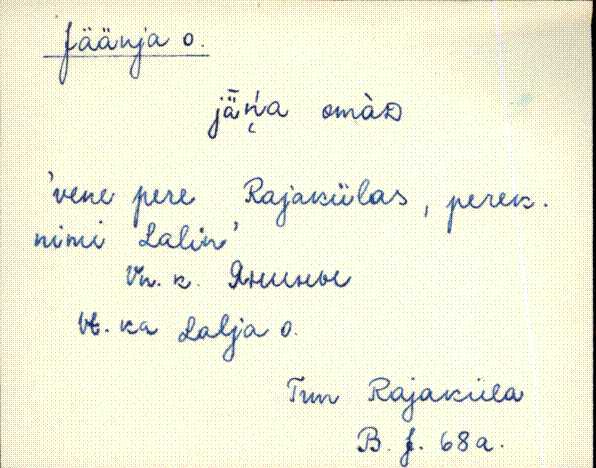 Jäänja o.
jǟń̜a omàᴅ
'vene pere Rajakülas, perek.
nimi Lalin'
Vn. k. Янины
Vt. ka Lalja o.
Trm Rajaküla
B. f. 68a.